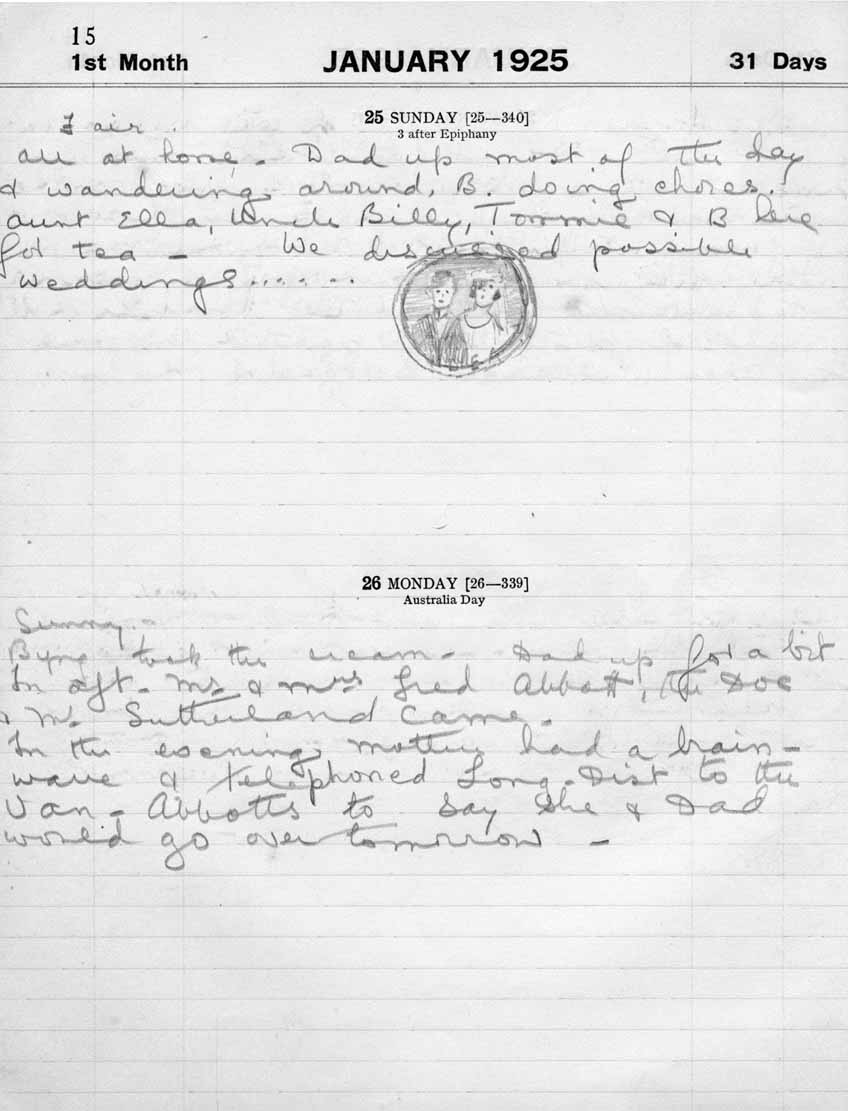 15
1st Month JANUARY 1925 31 Days
25 SUNDAY [25—340]
3 after Epiphany
Fair.
all at home. Dad up most of the day
& wandering around. B. doing chores.
Aunt Ella, Uncle Billy, Tommie & B here
for tea – We discussed possible
weddings......
26 MONDAY [26—339]
Australia Day
Sunny.
Byng took the cream – Dad up for a bit
In aft. Mr & Mrs Fred Abbott, the Doc
& Mr Sutherland came.
In the evening mother had a brain-
wave & telephoned Long-Dist to the
Van-Abbotts to say she & Dad
would go over tomorrow –